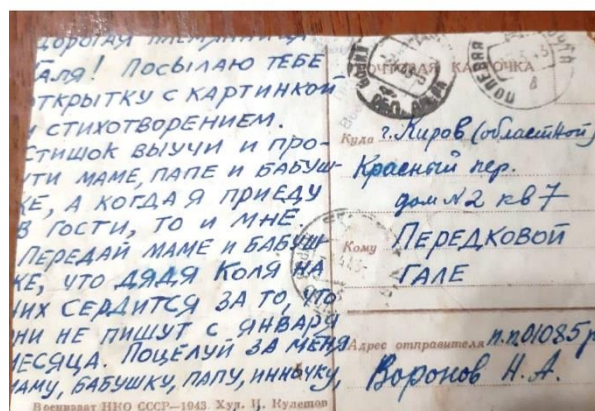 ДОРОГАЯ ПЛЕМЯННИЦА
ГАЛЯ! ПОСЫЛАЮ ТЕБЕ
ОТКРЫТКУ С КАРТИНКОЙ
И СТИХОТВОРЕНИЕМ.
СТИШОК ВЫУЧИ И ПРО-
ЧТИ МАМЕ, ПАПЕ И БАБУШ-
КЕ, А КОГДА Я ПРИЕДУ
В ГОСТИ, ТО И МНЕ.
ПЕРЕДАЙ МАМЕ И БАБУШ-
КЕ, ЧТО ДЯДЯ КОЛЯ НА
НИХ СЕРДИТСЯ ЗА ТО, ЧТО
ОНИ НЕ ПИШУТ С ЯНВАРЯ
МЕСЯЦА. ПОЦЕЛУЙ ЗА МЕНЯ
МАМУ, БАБУШКУ, ПАПУ, ИННОЧКУ,
Воениздат НКО СССР—1943. Худ. Ц. Кулешов
ПОЧТОВАЯ КАРТОЧКА
ПОЛЕВАЯ
Куда г. Киров (областной)
Красный пер.
дом № 2 кв 7
Кому ПЕРЕДКОВОЙ
ГАЛЕ
Адрес отправителя п.п. 01085
Воронов Н. А.